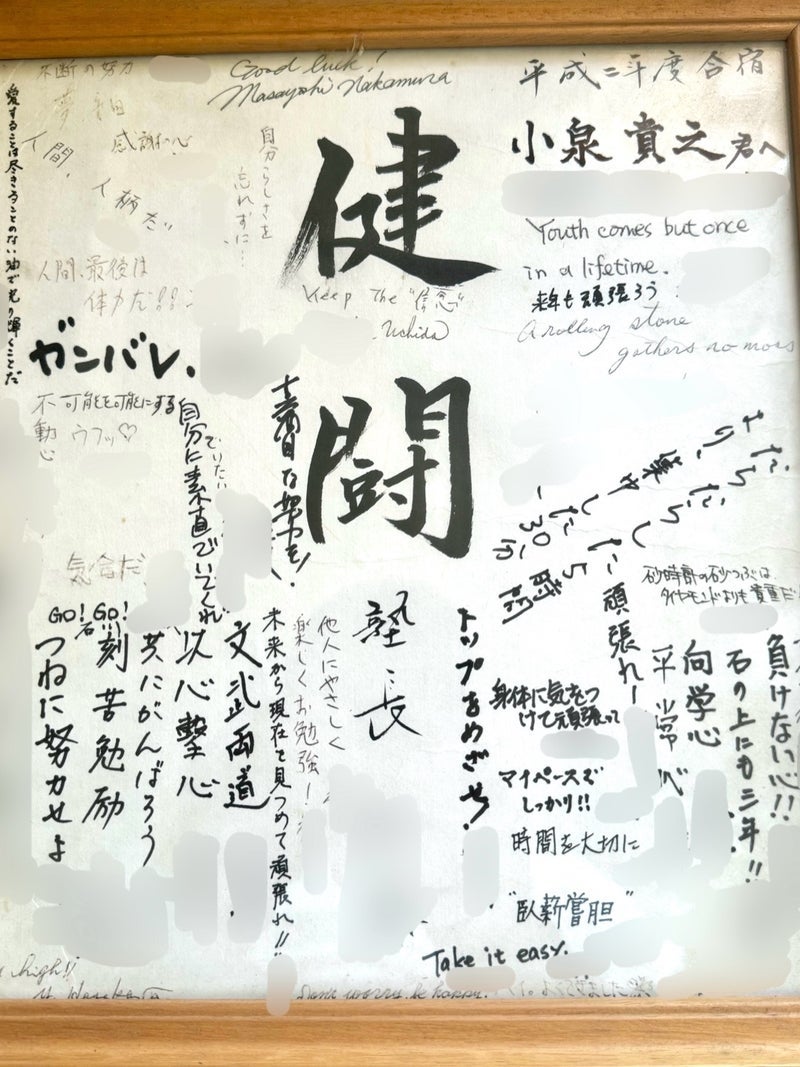 平成二年度合宿
小泉貴之君へ
健闘
Good luck!
Masayoshi Nakamura
不断の努力
感謝の心
人間、人柄だ
愛することは尽きることのない油で光り輝くことだ
自分らしさを
忘れずに…
人間、最後は
体力だ!!
ガンバレ、
Keep The "信念"
Uchida
Youth comes but once
in a lifetime.
来年も頑張ろう
A rolling stone
gathers no moss
不可能を可能にする
不動心
ウフッ♡
自分に素直でいてくれ
でいたい
気合だ
まだらだら
集中した
一30分
頑張れ!
砂時計の砂つぶは、
ダイヤモンドよりも貴重だ
負けない心!!
石の上にも三年!!
向学心
平常心
トップをめざせ!
身体に気をつ
けて頑張って
マイペースで
しっかり!!
時間を大切に
"臥薪嘗胆"
Take it easy.
塾長
他人にやさしく
楽しくお勉強!
未来から現在を見つめて頑張れ!!
文武両道
以心撃心
共にがんばろう
GO! GO!
刻苦勉励
つねに努力せよ
high!!
Don't worry. be happy.